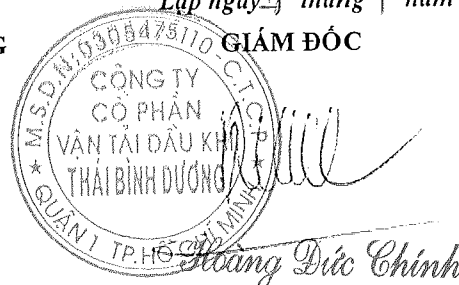 Lập ngày tháng năm
G
GIÁM ĐỐC
M.S.D.N:0305475110-C.T.C.P
CÔNG TY
CỔ PHẦN
VẬN TẢI DẦU KHÍ
THÁI BÌNH DƯƠNG
QUẬN 1 TP.HỒ CHÍ MINH
Hoàng Đức Chính